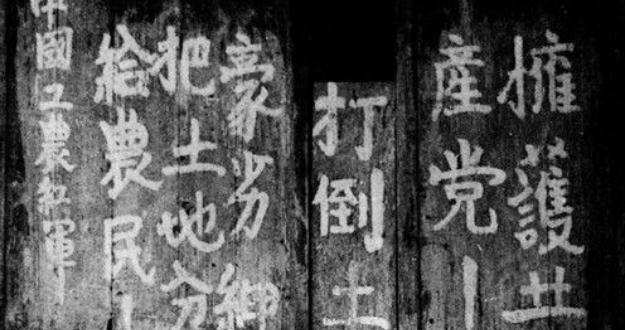 擁護共
産党！
打倒土
豪劣紳
把土地分
給農民！
中國工農紅軍